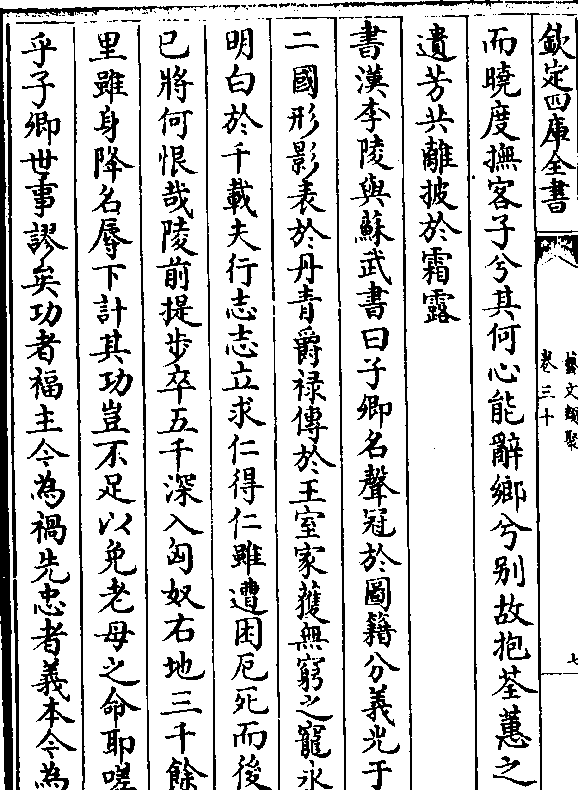 欽定四庫全書
藝文類聚
卷三十
七
而曉度撫客子兮其何心能辭鄉兮别故抱荃蕙之
遺芳共離披於霜露
書漢李陵與蘇武書曰子卿名聲冠於圖籍分義光于
二國形影表於丹青爵禄傳於王室家獲無窮之寵永
明白於千載夫行志志立求仁得仁雖遭困厄死而後
已將何恨哉陵前提步卒五千深入匈奴右地三千餘
里雖身降名辱下計其功豈不足以免老母之命耶嗟
乎子卿世事謬矣功者福主今為禍先忠者義本今為